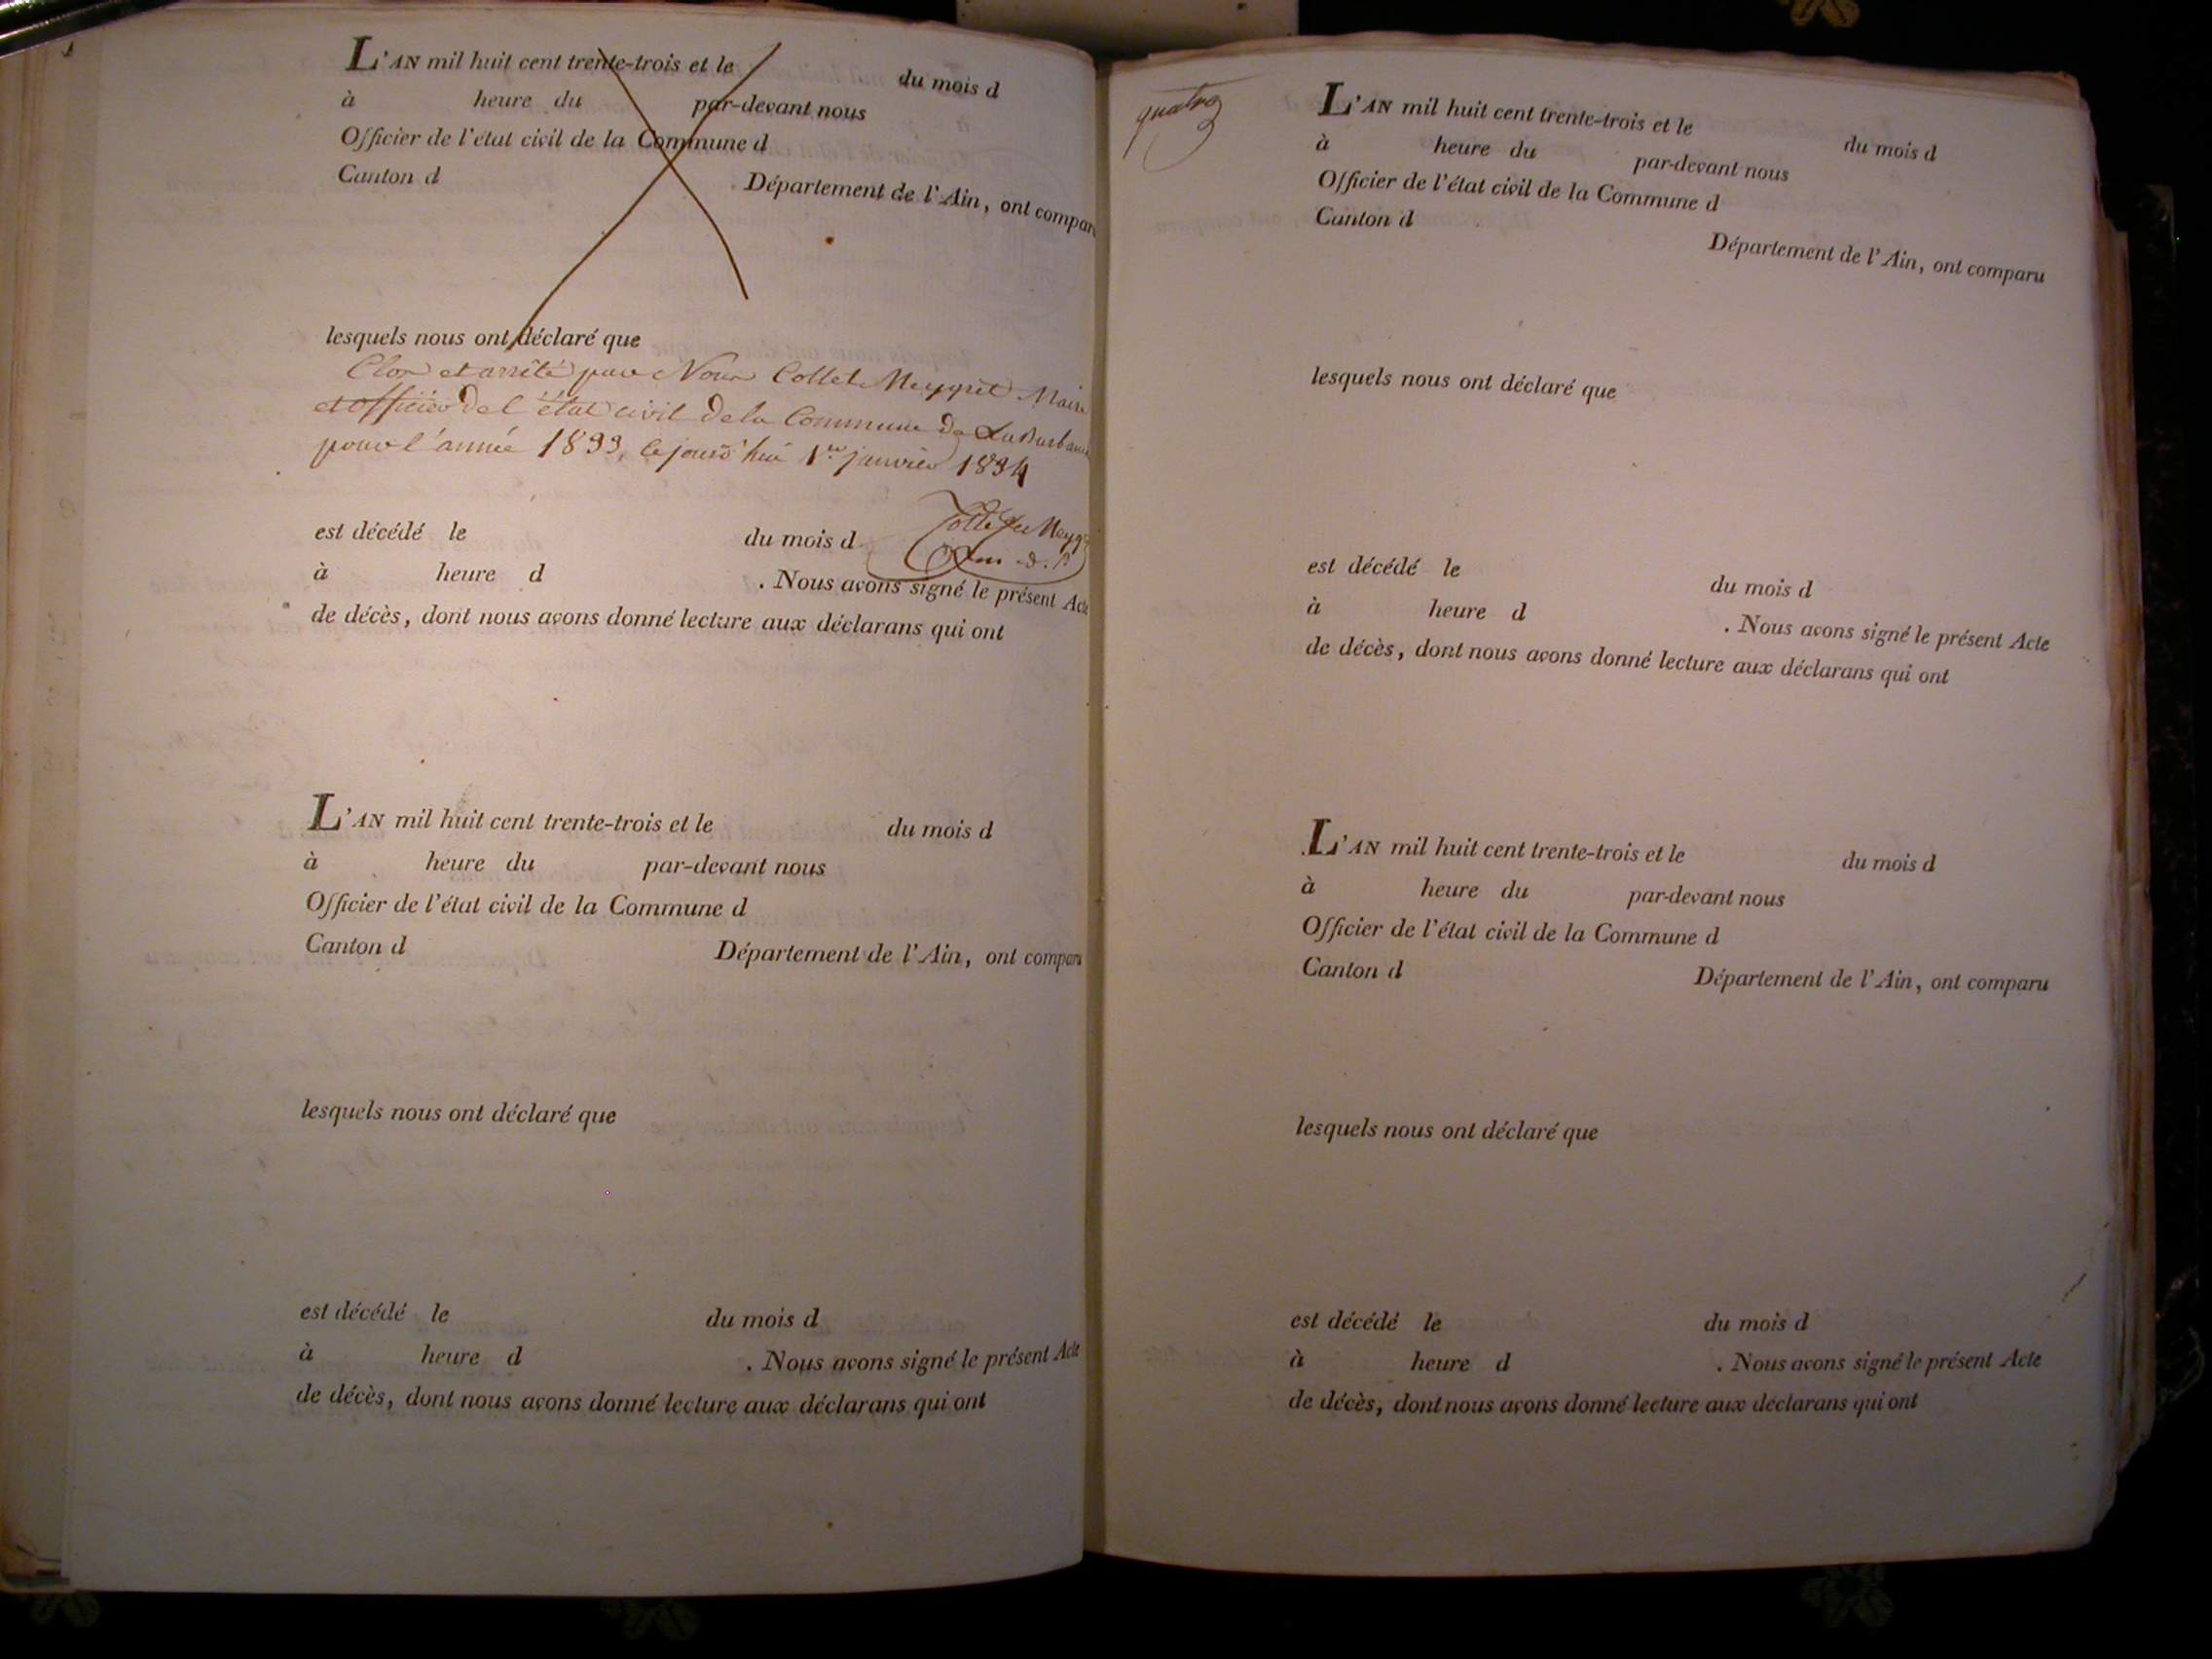 L'AN mil huit cent trente-trois et le du mois d
à heure du par-devant nous
Officier de l'état civil de la Commune d
Canton d Département de l'Ain, ont comparu
lesquels nous ont déclaré que
Clos et arrêté par Nous Collet Meygret Maire
et officier de l'état civil de la Commune de
pour l'année 1833, ce jourd'hui 1er janvier 1834
est décédé le du mois d
à heure d . Nous avons signé le présent Acte
de décès, dont nous avons donné lecture aux déclarans qui ont
L'AN mil huit cent trente-trois et le du mois d
à heure du par-devant nous
Officier de l'état civil de la Commune d
Canton d Département de l'Ain, ont comparu
lesquels nous ont déclaré que
est décédé le du mois d
à heure d . Nous avons signé le présent Acte
de décès, dont nous avons donné lecture aux déclarans qui ont
quatre
L'AN mil huit cent trente-trois et le du mois d
à heure du par-devant nous
Officier de l'état civil de la Commune d
Canton d
Département de l'Ain, ont comparu
lesquels nous ont déclaré que
est décédé le du mois d
à heure d . Nous avons signé le présent Acte
de décès, dont nous avons donné lecture aux déclarans qui ont
L'AN mil huit cent trente-trois et le du mois d
à heure du par-devant nous
Officier de l'état civil de la Commune d
Canton d Département de l'Ain, ont comparu
lesquels nous ont déclaré que
est décédé le du mois d
à heure d . Nous avons signé le présent Acte
de décès, dont nous avons donné lecture aux déclarans qui ont